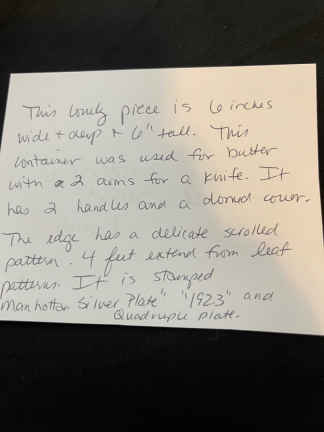 This lovely piece is 6 inches
wide + deep + 6" tall. This
container was used for butter
with 2 arms for a knife. It
has 2 handles and a domed cover.
The edge has a delicate scrolled
pattern. 4 feet extend from leaf
patterns. It is stamped
Manhattan Silver Plate" "1923" and
Quadruple plate.